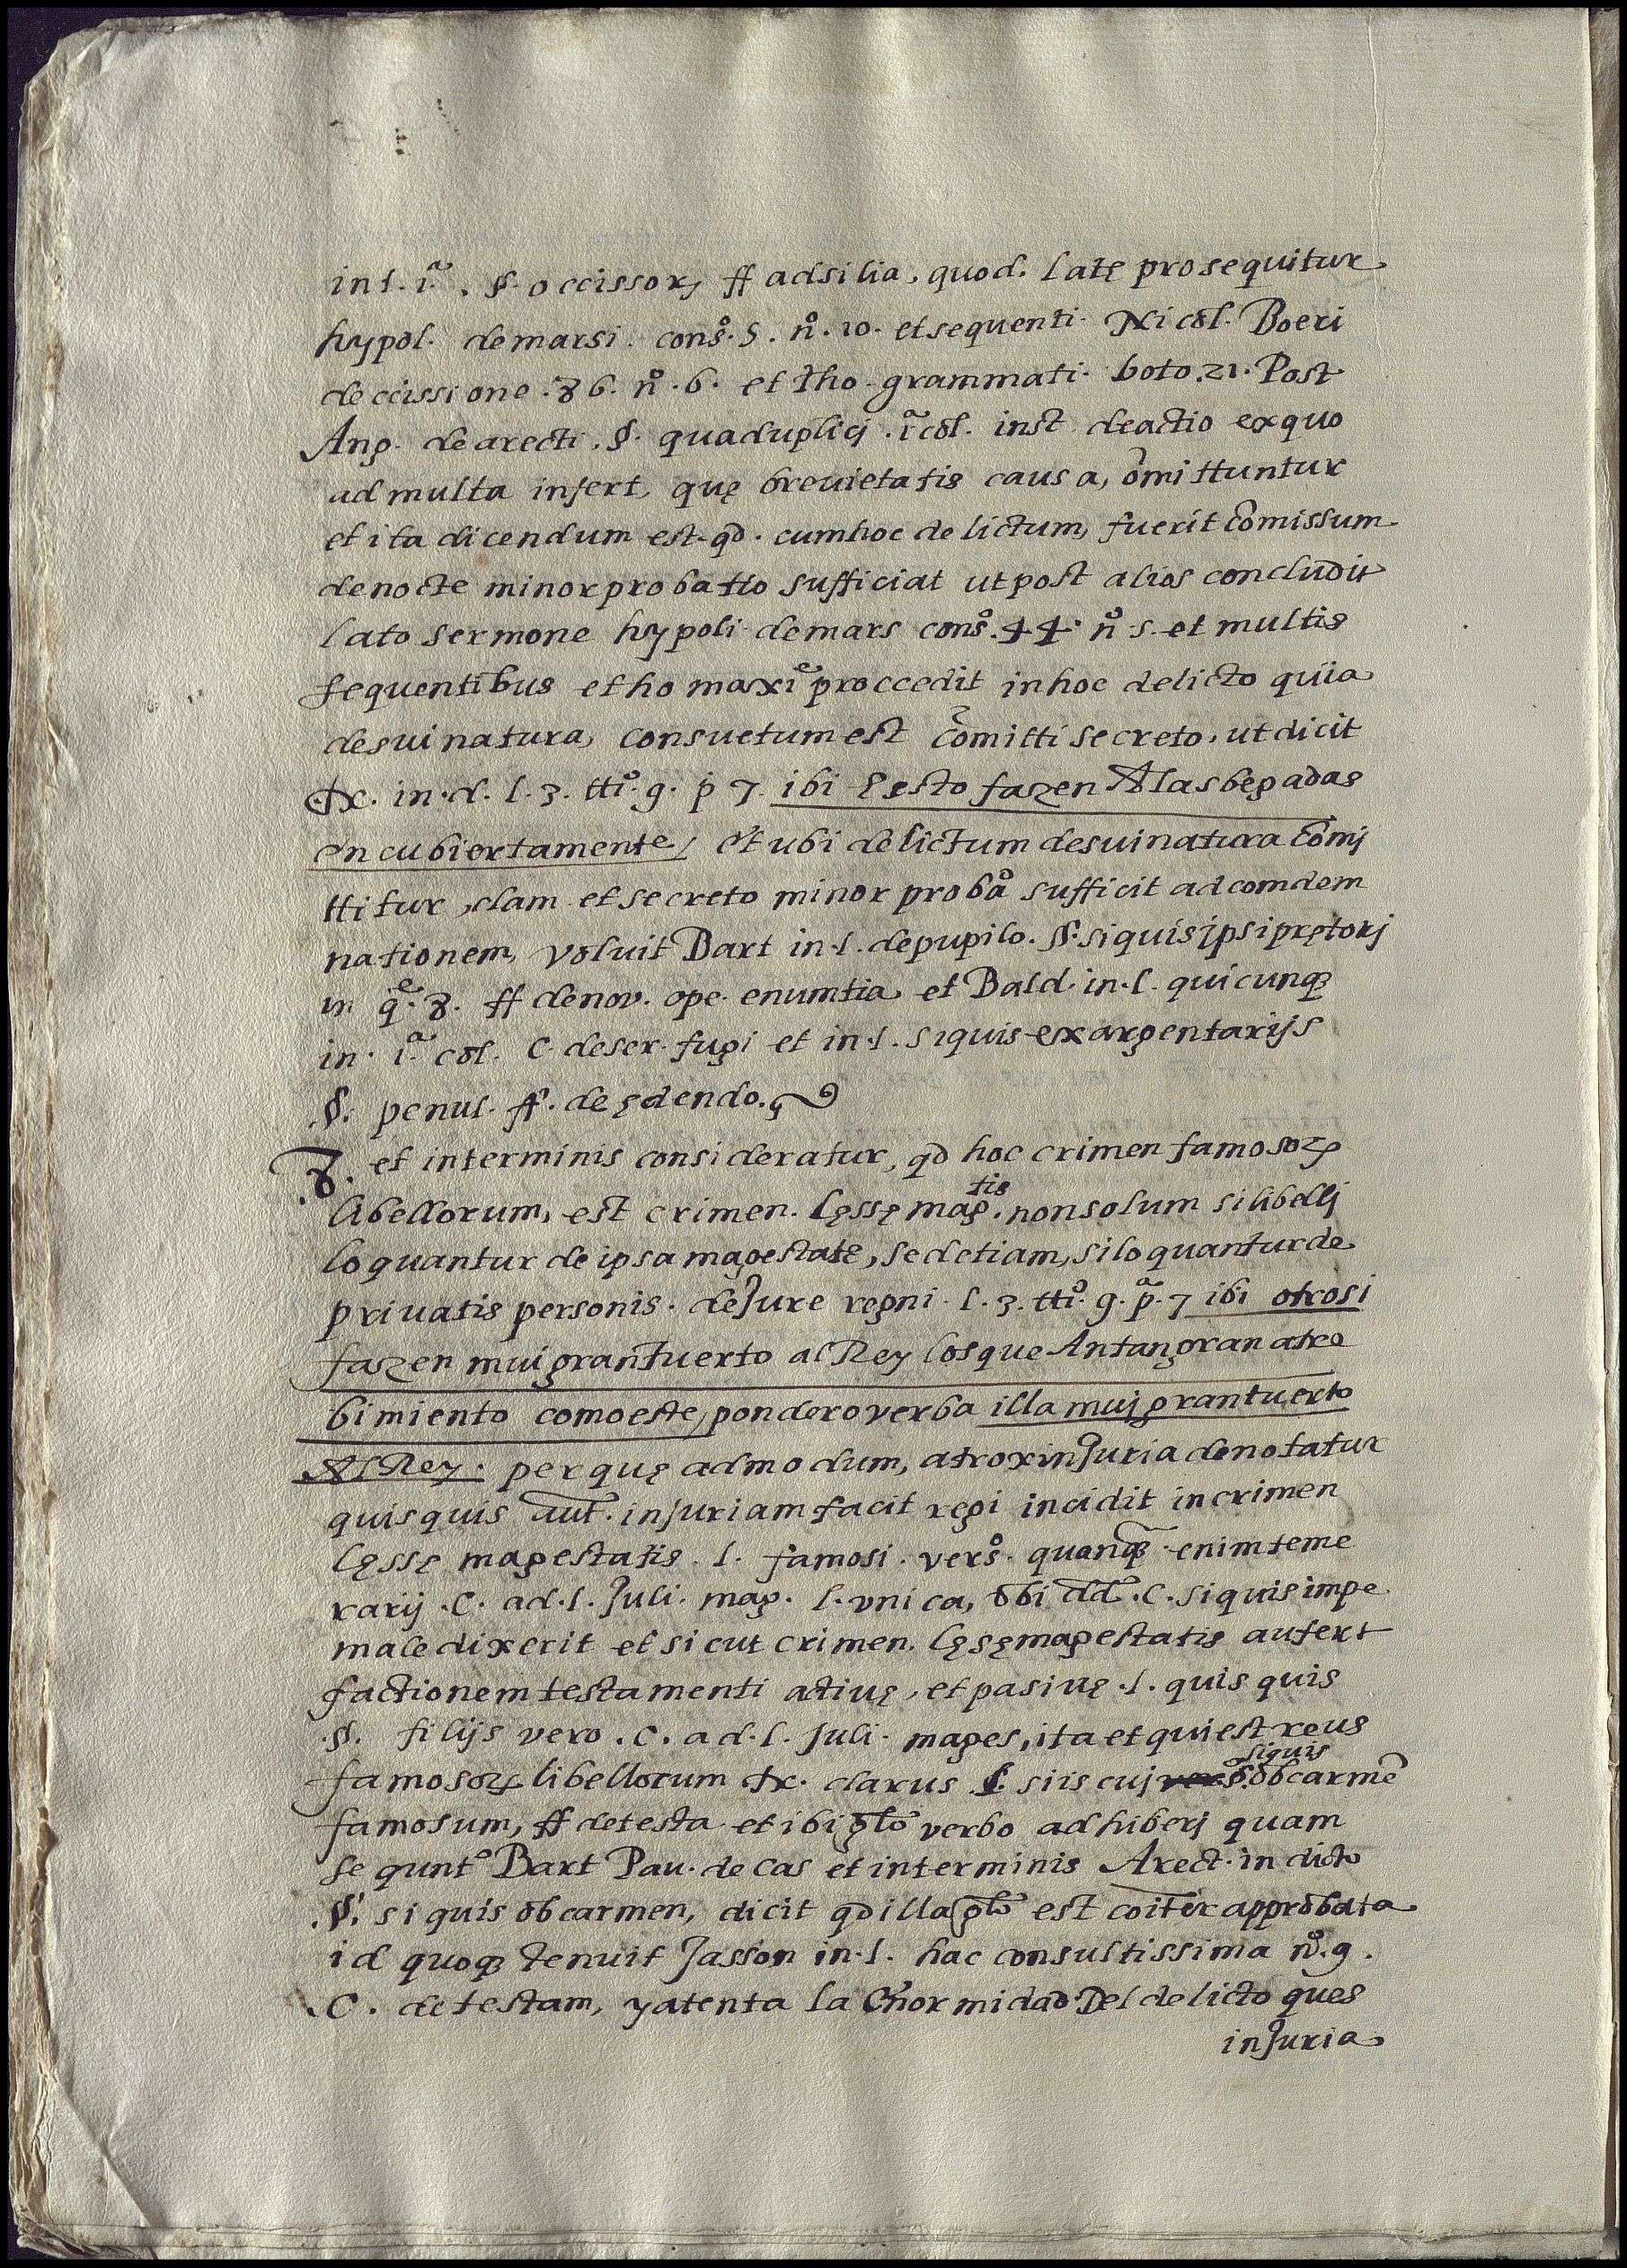 in l. 1ª. §. occissorũ ff ad silia, quod. latę prosequitur
hypol. de marsi. consº. 5. nº. 10. et sequenti. Nicol. Boeri
deccissione. 86. nº. 6. et tho. grammati. boto. 21. Post
Ang. de arecti. §. quaduplicj. 1ª col. inst de actio ex quo
ad multa infert, quę breuietatis causa, õmittuntur
et ita dicendum est. qd. cum hoc delictum, fuerit cõmissum
de nocte minor probatio sufficiat ut post alios concludit
lato sermone hypoli de mars consº. 44. nº 5. et multis
sequentibus et ho maxiᵉ proccedit in hoc delicto quia
de sui natura, consuetum est cõmitti secreto, ut dicit
tx. in. d. l. 3. ttº. 9. p 7. ibi E esto fazen A las begadas
encubiertamente, et ubi delictum de sui natura cõmj
ttitur, clam et secreto minor probaº sufficit ad comdem
nationem, voluit Bart in. l. de pupilo. §. si quis jpsi prętorj
in qᵉ. 8. ff de nov. ope. enumtia et Bald. in. l. quicunq3
in. 1ª col. C. de ser. fugi et in. l. si quis ex argentarijs
§. penul. ff. de ędendo.
.8. et in terminis consideratur, qd hoc crimen famosoꝝ
libellorum, est crimen. lęssę mag.tis non solum si libellj
loquantur de ipsa magestatę, sed etiam, si loquantur de
priuatis personis. de Jure regni. l. 3. ttº. 9. pª. 7 ibi otrosi
fazen mui gran tuerto al Rey los que Antan gran atre
bimiento como este, pondero verba illa muj gran tuerto
Al Rey. per quę admodum, atrox inJuria denotatur
quisquis aut̃. inJuriam facit regi incidit in crimen
lęssę magestatis. l. famosi. versº. quanq̃3. enim teme
rarij. C. ad. l. Juli. mag. l. vnica, vbi dd̃. C. si quis impe.
maledixerit et sicut crimen. lęsę magestatis aufert
factionem testamenti actiuę, et pasiuę. l. quis quis
§. filijs vero. C. ad. l. Juli. mages, ita et qui est reus
famosoꝝ libellorum tx. clarus l. si is cuj §. siquis ob carmẽ
famosum, ff de testa. et ibi glõ verbo adhiberj quam
sequntʳ Bart Pau. de Cas et in terminis Arect. in dicto
.§. si quis ob carmen, dicit qd illa glõ est coiter approbata
id quoq3 tenuit Jasson in. l. hac consultissima nº. 9.
.C. de testam, y atenta la Enormidad Del delicto ques
inJuria